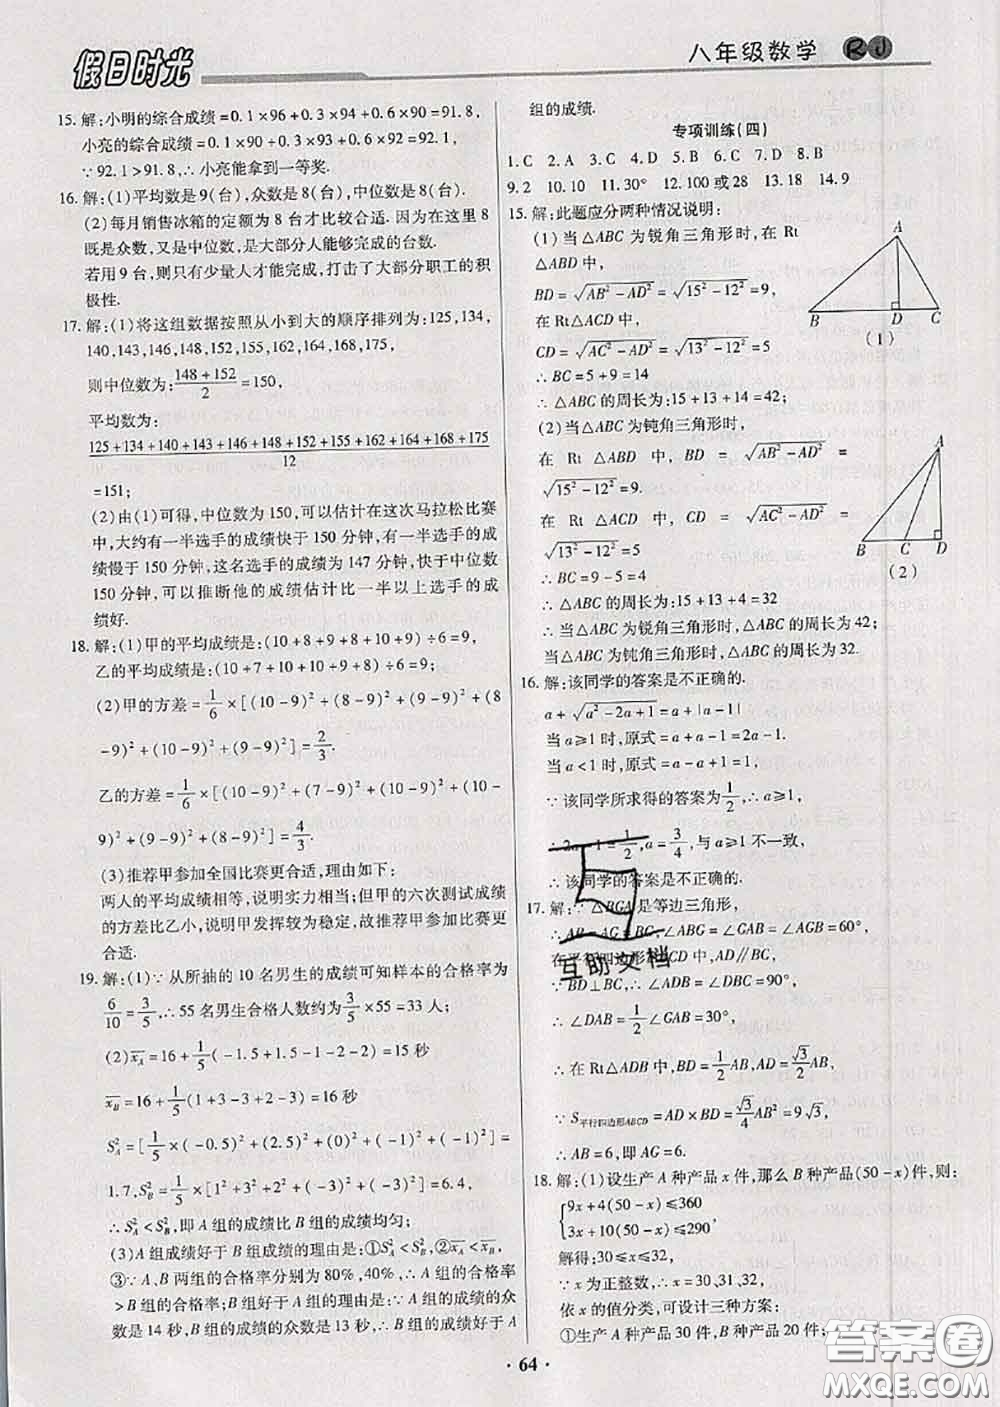 假日时光
八年级数学 RJ
15. 解:小明的综合成绩=0.1×96+0.3×94+0.6×90=91.8,
小亮的综合成绩=0.1×90+0.3×93+0.6×92=92.1.
∵92.1>91.8,∴小亮能拿到一等奖.
16. 解:(1)平均数是9(台),众数是8(台),中位数是8(台).
(2)每月销售冰箱的定额为8台才比较合适.因为在这里8
既是众数,又是中位数,是大部分人能够完成的台数.
若用9台,则只有少量人才能完成,打击了大部分职工的积
极性.
17. 解:(1)将这组数据按照从小到大的顺序排列为:125,134,
140,143,146,148,152,155,162,164,168,175,
则中位数为:(148+152)/2=150,
平均数为:
(125+134+140+143+146+148+152+155+162+164+168+175)/12
=151;
(2)由(1)可得,中位数为150,可以估计在这次马拉松比赛
中,大约有一半选手的成绩快于150分钟,有一半选手的成
绩慢于150分钟,这名选手的成绩为147分钟,快于中位数
150分钟,可以推断他的成绩估计比一半以上选手的成
绩好.
18. 解:(1)甲的平均成绩是:(10+8+9+8+10+9)÷6=9,
乙的平均成绩是:(10+7+10+10+9+8)÷6=9;
(2)甲的方差=1/6×[(10-9)²+(8-9)²+(9-9)²+(8-
9)²+(10-9)²+(9-9)²]=2/3.
乙的方差=1/6×[(10-9)²+(7-9)²+(10-9)²+(10-
9)²+(9-9)²+(8-9)²]=4/3.
(3)推荐甲参加全国比赛更合适,理由如下:
两人的平均成绩相等,说明实力相当;但甲的六次测试成绩
的方差比乙小,说明甲发挥较为稳定,故推荐甲参加比赛更
合适.
19. 解:(1)∵从所抽的10名男生的成绩可知样本的合格率为
6/10=3/5,∴55名男生合格人数约为3/5×55=33人;
(2)x̄_A=16+1/5(-1.5+1.5-1-2-2)=15秒
x̄_B=16+1/5(1+3-3+2-3)=16秒.
S²_A=[1/5×(-0.5)²+(2.5)²+(0)²+(-1)²+(-1)²]=
1.7,S²_B=1/5×[1²+3²+2²+(-3)²+(-3)²]=6.4,
∴S²_A<S²_B,即A组的成绩比B组的成绩均匀;
(3)A组成绩好于B组成绩的理由是:①S²_A<S²_B,②x̄_A>x̄_B.
③∵A、B两组的合格率分别为80%,40%,∴A组的合格率
>B组的合格率;B组好于A组的理由是:∵A组的成绩的众
数是14秒,B组的成绩的众数是13秒,∴B组的成绩好于A
组的成绩.
专项训练(四)
1.C 2.A 3.A 4.D 5.B 6.C 7.D 8.B
9.2 10.10 11.30° 12.100或28 13.18 14.9
15. 解:此题应分两种情况说明:
(1)当△ABC为锐角三角形时,在Rt
△ABD中,
BD=√(AB²-AD²)=√(15²-12²)=9,
在Rt△ACD中,
CD=√(AC²-AD²)=√(13²-12²)=5
∴BC=5+9=14
∴△ABC的周长为:15+13+14=42;
(2)当△ABC为钝角三角形时,
在Rt△ABD中,BD=√(AB²-AD²)=
√(15²-12²)=9.
在Rt△ACD中,CD=√(AC²-AD²)=
√(13²-12²)=5
∴BC=9-5=4
∴△ABC的周长为:15+13+4=32
∴当△ABC为锐角三角形时,△ABC的周长为42;
当△ABC为钝角三角形时,△ABC的周长为32.
A
B D C
(1)
A
B C D
(2)
16. 解:该同学的答案是不正确的.
a+√(a²-2a+1)=a+|a-1|
当a≥1时,原式=a+a-1=2a-1.
当a<1时,原式=a-a+1=1,
∵该同学所求得的答案为1/2,∴a≥1,
∴2a-1=1/2,a=3/4,与a≥1不一致,
∴该同学的答案是不正确的.
17. 解:∵△BGA是等边三角形,
∴AB=AG=BG,∠ABG=∠GAB=∠AGB=60°,
在平行四边形ABCD中,AD∥BC,
∵BD⊥BC,∴∠ADB=∠DBC=90°,
∴∠DAB=1/2∠GAB=30°,
∴在Rt△ADB中,BD=1/2AB,AD=√3/2AB,
∵S平行四边形ABCD=AD×BD=√3/4AB²=9√3,
∴AB=6,即AG=6.
18. 解:(1)设生产A种产品x件,那么B种产品(50-x)件,则:
{9x+4(50-x)≤360
3x+10(50-x)≤290,
解得:30≤x≤32,
∵x为正整数,∴x=30、31、32,
依x的值分类,可设计三种方案:
①生产A种产品30件,B种产品20件;
互助文档
· 64 ·
答案圈
MXQE.COM